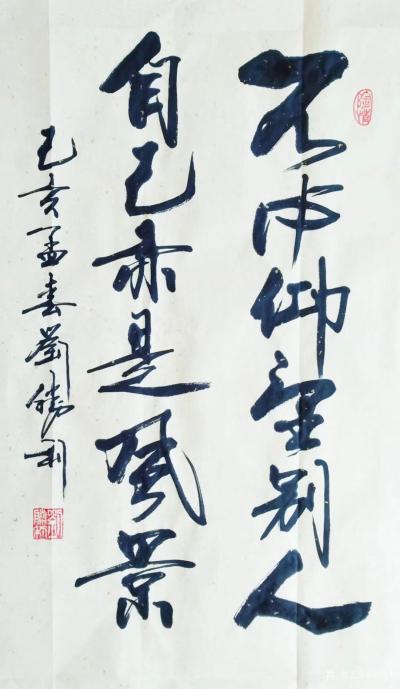 不必仰望别人
自己亦是風景
己亥孟春劉勝利